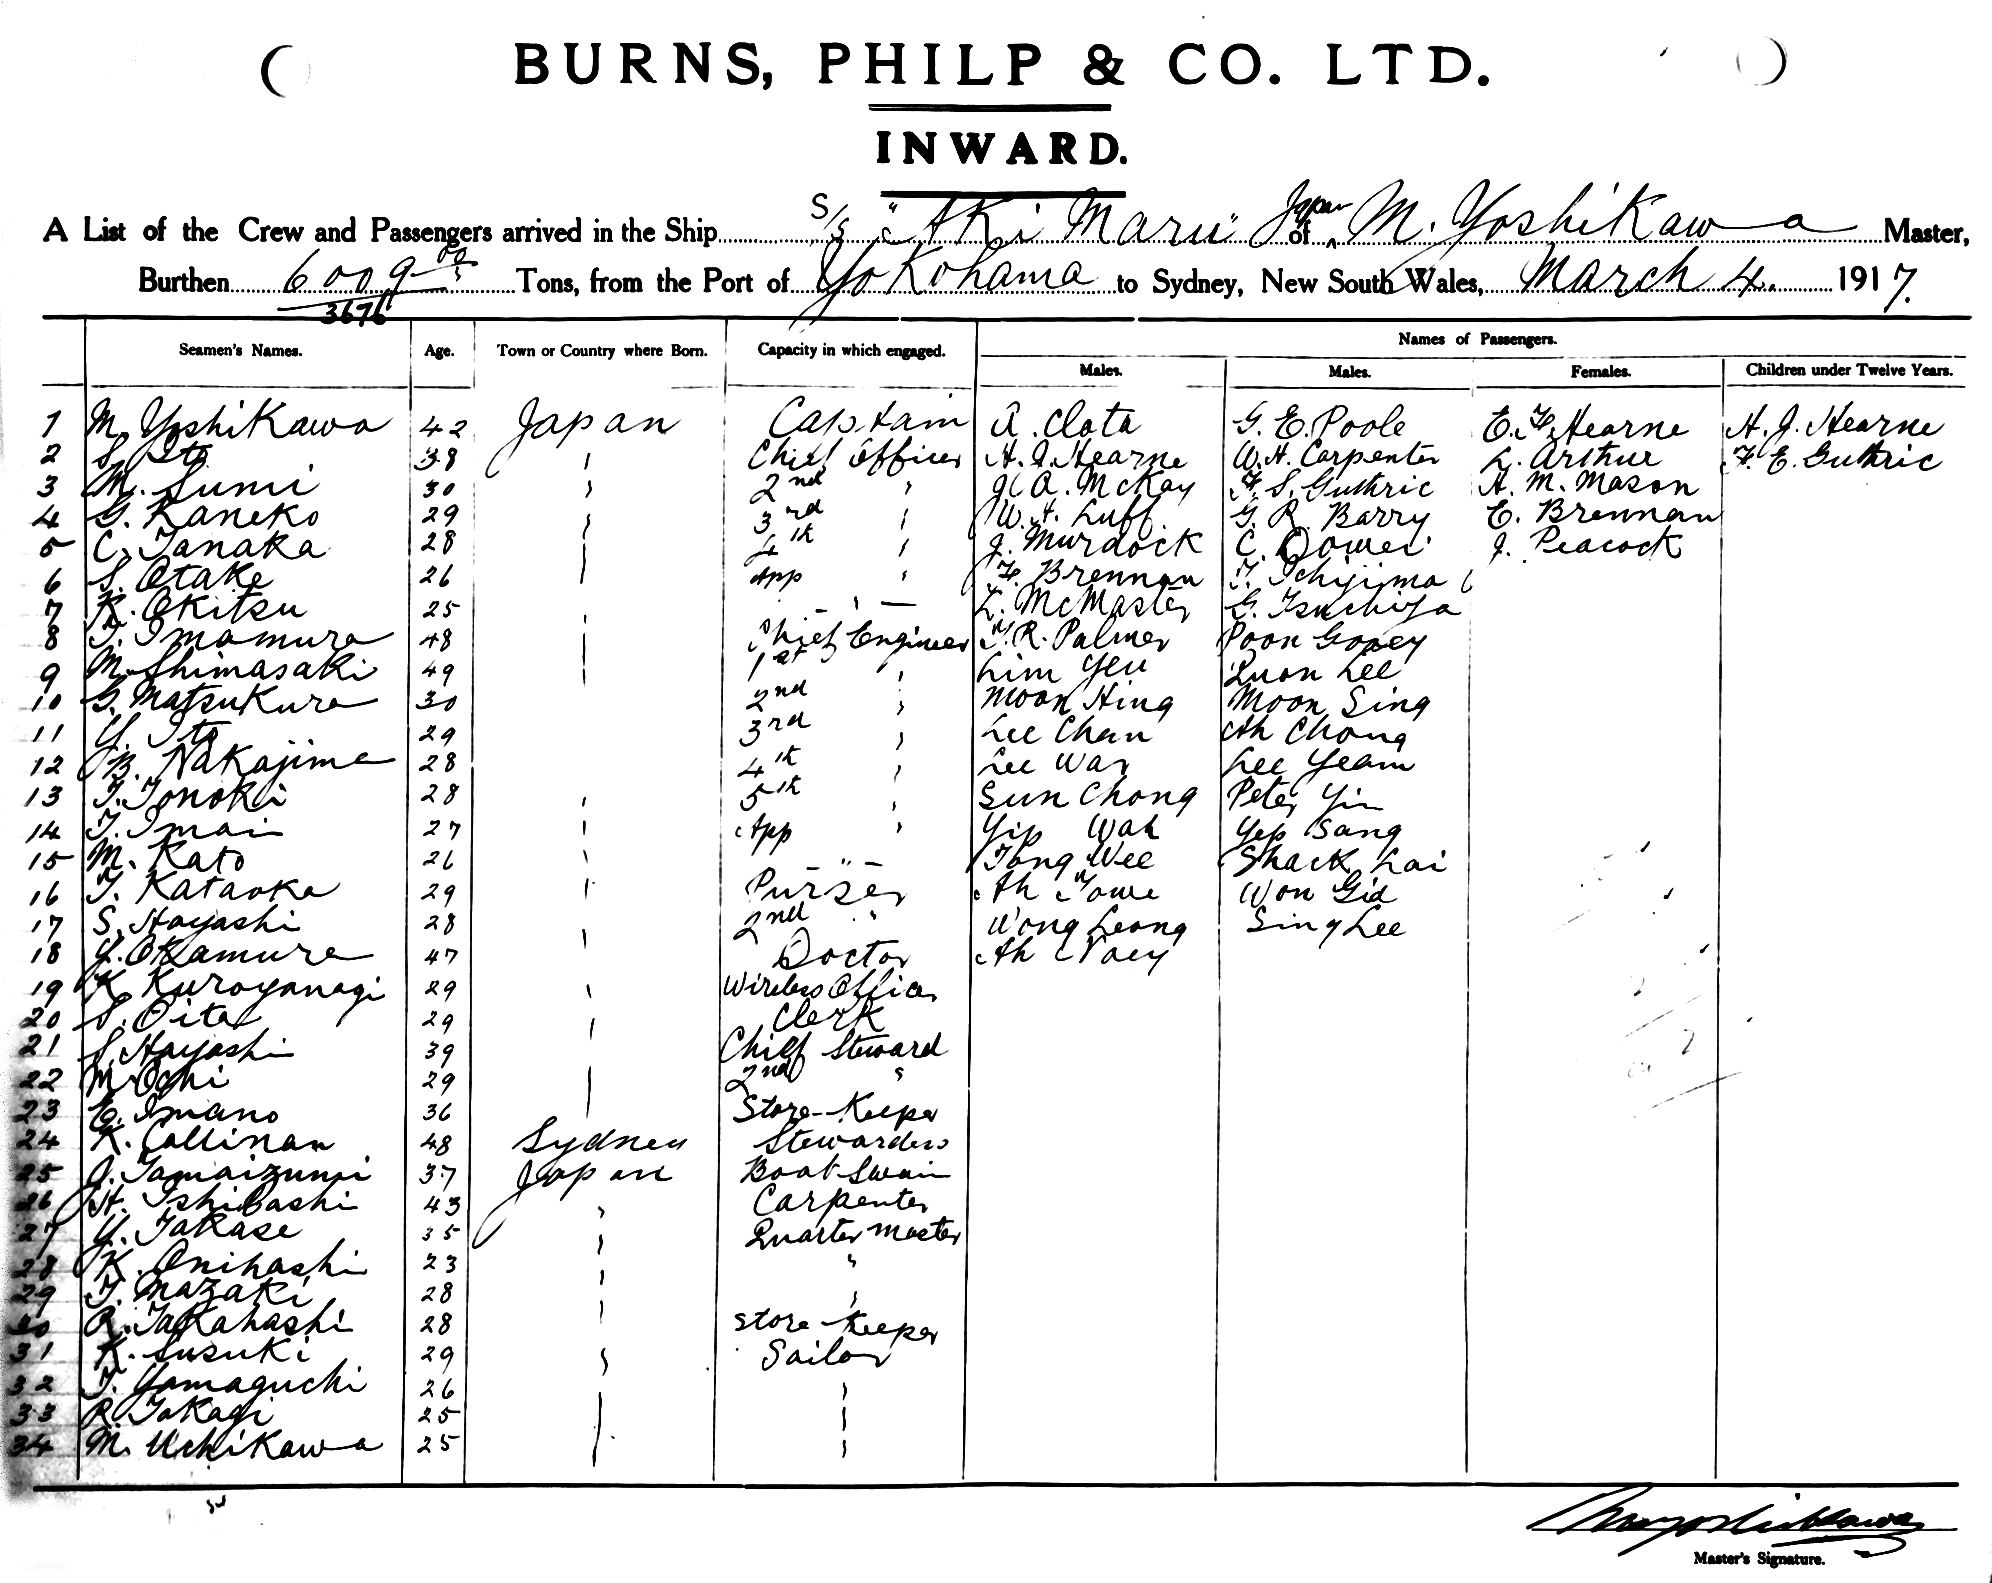 BURNS, PHILP & CO. LTD.
INWARD.
A List of the Crew and Passengers arrived in the Ship S/S "Aki Maru" of Japan M. Yoshikawa Master,
Burthen 6009 Tons, from the Port of Yokohama to Sydney, New South Wales, March 4. 1917.
3676
Names of Passengers.
Seamen's Names. Age. Town or Country where Born. Capacity in which engaged. Males. Males. Females. Children under Twelve Years.
1 M. Yoshikawa 42 Japan Captain A. Clota G. E. Poole E. F. Hearne H. J. Hearne
2 S. Ito 38 " Chief Officer H. J. Hearne W. H. Carpenter L. Arthur F. E. Guthrie
3 M. Sumi 30 " 2nd " A. McKay F. S. Guthrie H. M. Mason
4 G. Kaneko 29 " 3rd " W. H. Luff G. R. Barry E. Brennan
5 C. Tanaka 28 4th " J. Murdock C. J. Peacock
6 S. Otake 26 App " F. Brennan T. Ichijima
7 K. Okitsu 25 " — " — L. McMaster G. Tsuchiya
8 T. Imamura 48 Chief Engineer T. R. Palmer Poon Gooey
9 M. Shimasaki 49 1st " Lim Yeu Quon Lee
10 G. Matsukura 30 2nd " Moon Hing Moon Sing
11 Y. Ito 29 3rd " Lee Chan Ah Chong
12 B. Nakajima 28 4th " Lee War Lee Yeam
13 T. Tonoki 28 " 5th " Sun Chong Peter Yin
14 T. Imai 27 " App " Yip Wah Yep Sang
15 M. Kato 26 " — " — Tong Wee Shack Lai
16 T. Kataoka 29 " Purser Ah Won Gid
17 S. Hayashi 28 " 2nd " Wong Leong Sing Lee
18 Y. Okamura 47 " Doctor Ah
19 K. Kuroyanagi 29 " Wireless Officer
20 S. Oita 29 " Clerk
21 S. Hayashi 39 " Chief Steward
22 M. Ochi 29 2nd "
23 E. Imano 36 Store-Keeper
24 K. Callinan 48 Sydney Stewardess
25 J. Tamaizumi 37 Japan Boat Swain
26 H. Ishibashi 43 " Carpenter
27 Y. Takase 35 " Quarter master
28 K. Onihashi 23 " "
29 T. Mazaki 28 " "
30 R. Takahashi 28 Store-Keeper
31 K. Susuki 29 " Sailor
32 T. Yamaguchi 26 "
33 R. Takagi 25 "
34 M. Uchikawa 25 "
Master's Signature.